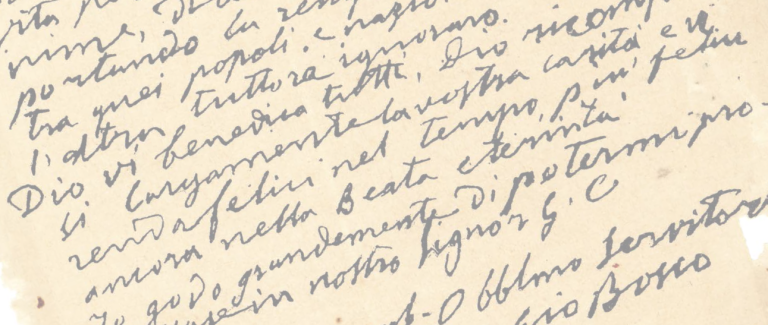 vita
nime,
portando la
tra quei popoli e nazio
l'altra tuttora ignorano.
Dio vi benedica tutti, Dio ricomp
si largamente la vostra carità e vi
renda felici nel tempo, più felici
ancora nella Beata eternità
Io godo grandemente di potermi pro-
in nostro Signor G. C
Obblmo servitore
Gio Bosco